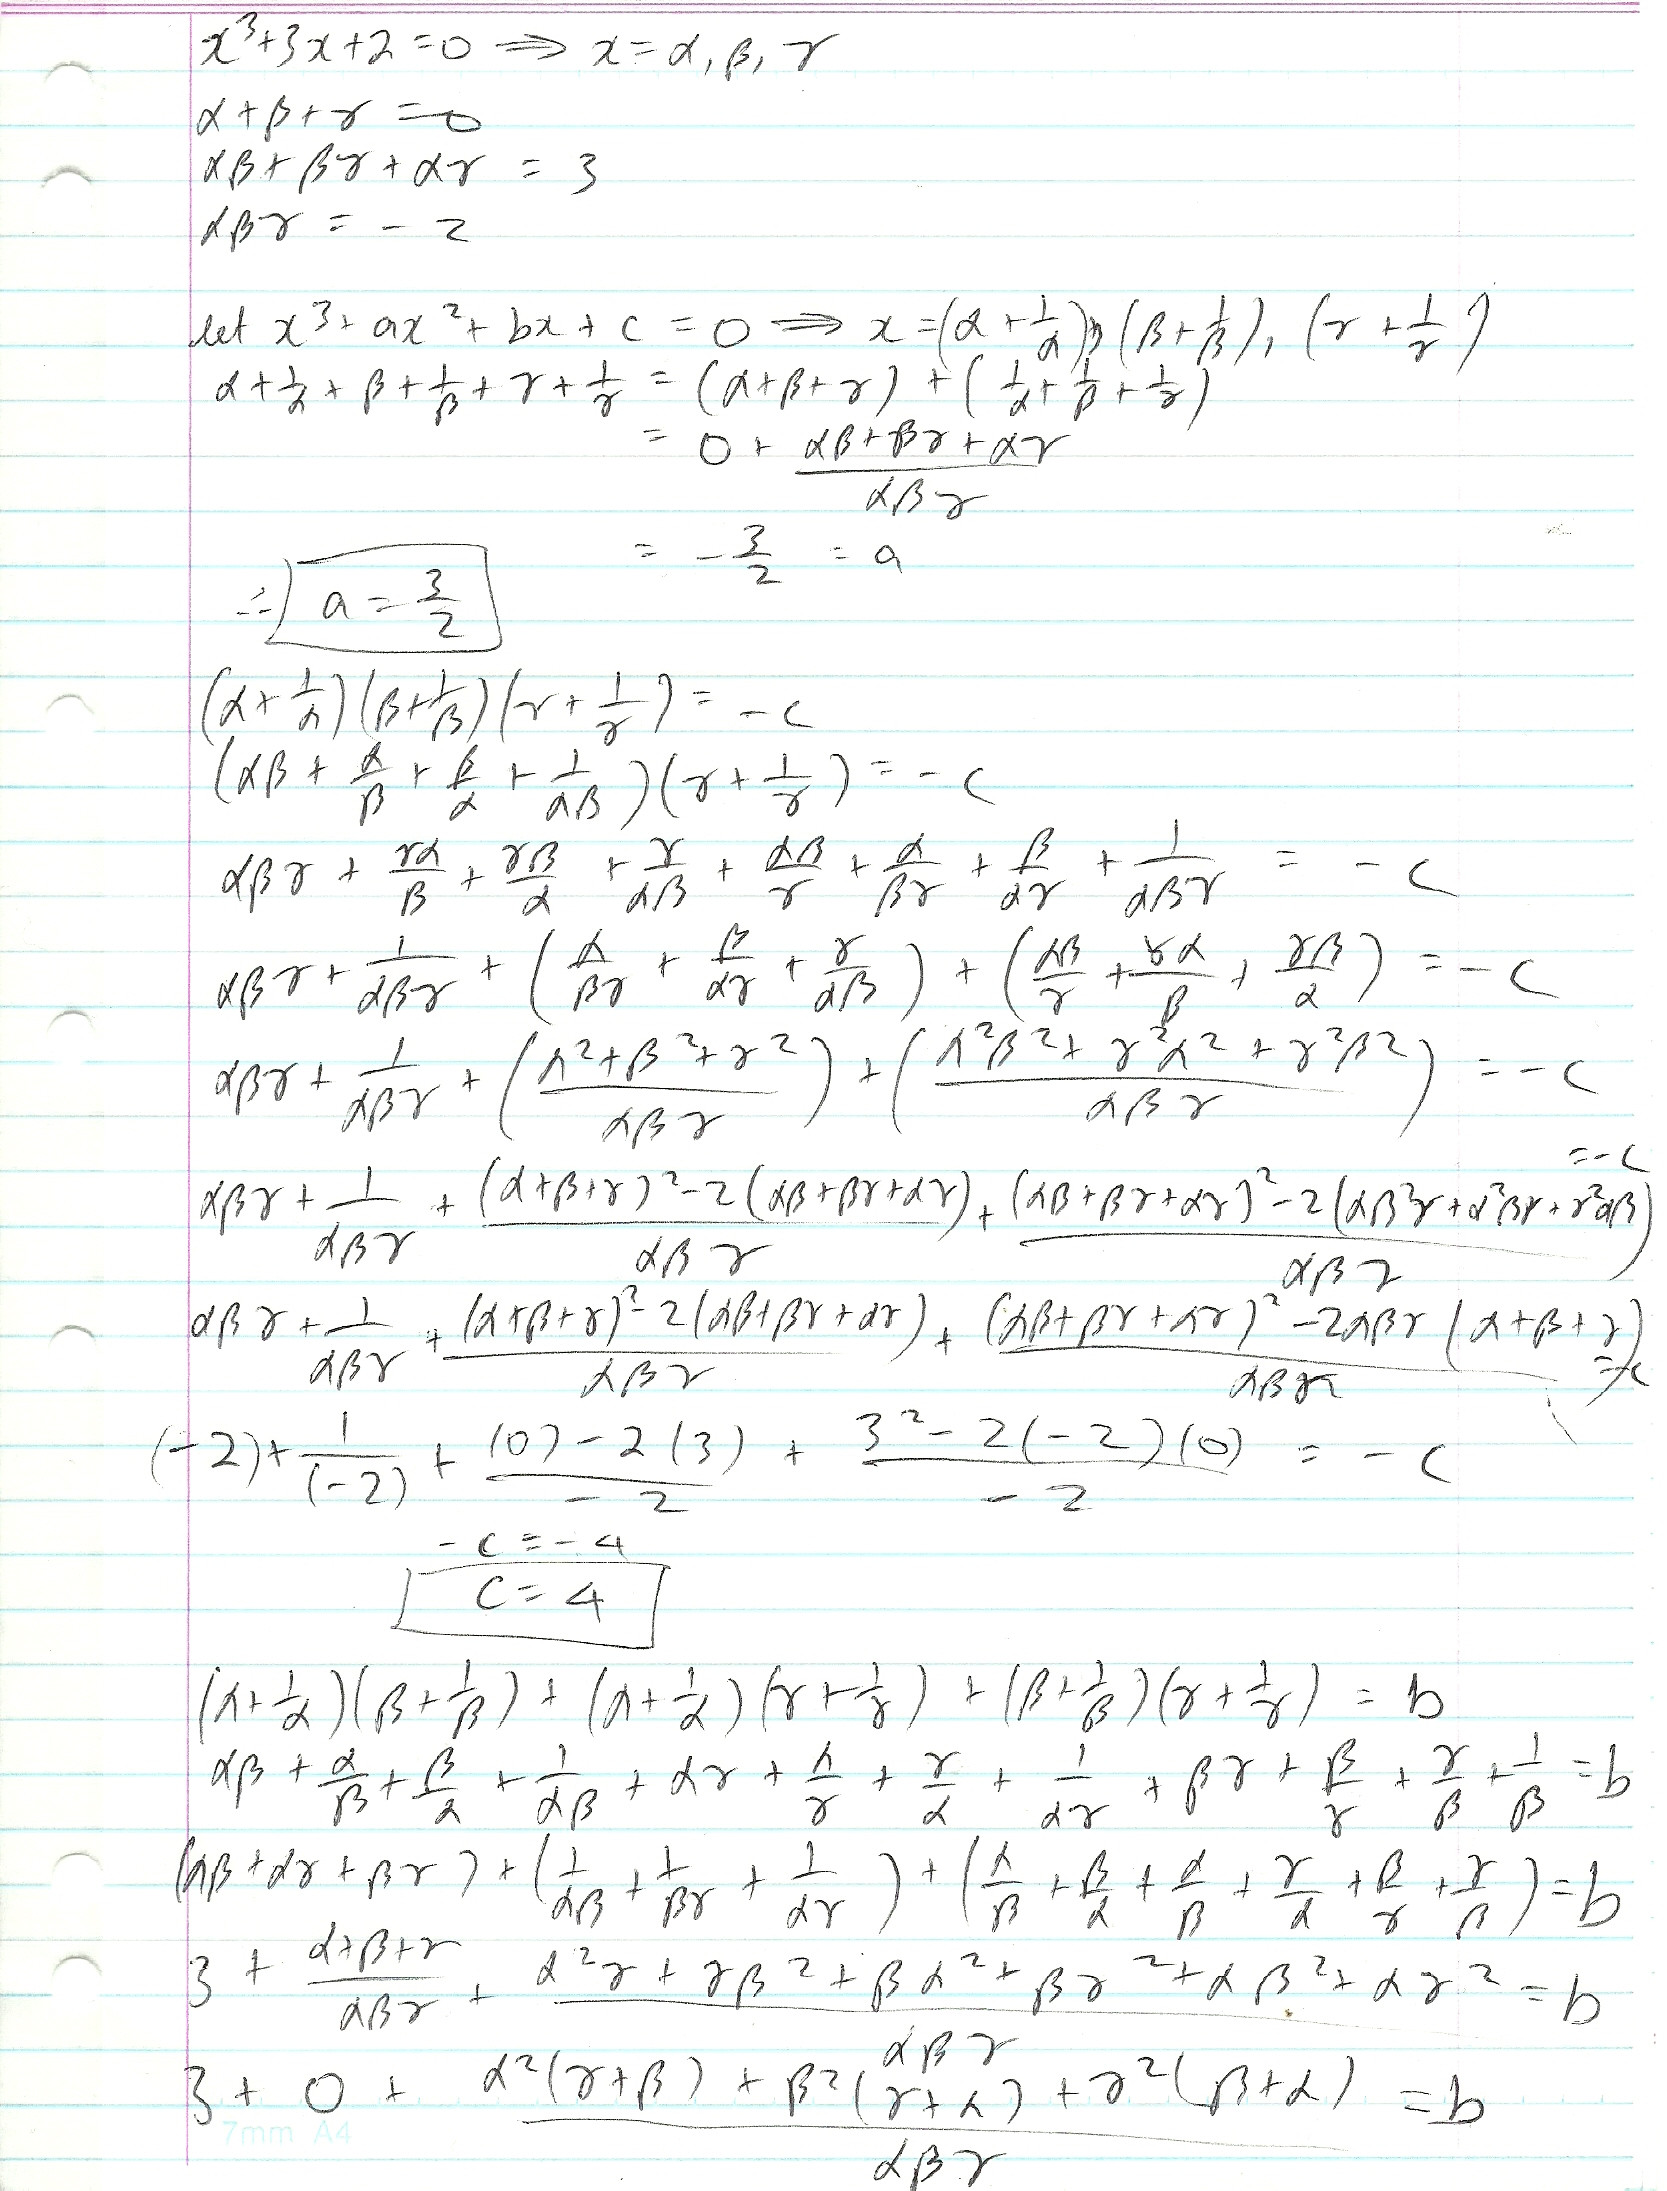 x³+3x+2=0 ⇒ x=α, β, γ
α+β+γ=0
αβ+βγ+αγ = 3
αβγ = -2
let x³+ax²+bx+c=0 ⇒ x=(α+1/α), (β+1/β), (γ+1/γ)
α+1/α+β+1/β+γ+1/γ = (α+β+γ)+(1/α+1/β+1/γ)
= 0+(αβ+βγ+αγ)/(αβγ)
= -3/2 = a
∴ a=3/2
(α+1/α)(β+1/β)(γ+1/γ)=-c
(αβ+α/β+β/α+1/(αβ))(γ+1/γ)=-c
αβγ+γα/β+γβ/α+γ/(αβ)+αβ/γ+α/(βγ)+β/(αγ)+1/(αβγ) = -c
αβγ+1/(αβγ)+(α/(βγ)+β/(αγ)+γ/(αβ))+(αβ/γ+γα/β+γβ/α)=-c
αβγ+1/(αβγ)+((α²+β²+γ²)/(αβγ))+((α²β²+γ²α²+γ²β²)/(αβγ))=-c
αβγ+1/(αβγ)+((α+β+γ)²-2(αβ+βγ+αγ))/(αβγ)+((αβ+βγ+αγ)²-2(αβ²γ+α²βγ+γ²αβ))/(αβγ) =-c
αβγ+1/(αβγ)+((α+β+γ)²-2(αβ+βγ+αγ))/(αβγ)+((αβ+βγ+αγ)²-2αβγ(α+β+γ))/(αβγ) =-c
(-2)+1/(-2)+((0)-2(3))/-2+(3²-2(-2)(0))/-2 = -c
-c=-4
c=4
(α+1/α)(β+1/β)+(α+1/α)(γ+1/γ)+(β+1/β)(γ+1/γ)=b
αβ+α/β+β/α+1/(αβ)+αγ+α/γ+γ/α+1/(αγ)+βγ+β/γ+γ/β+1/β=b
(αβ+αγ+βγ)+(1/(αβ)+1/(βγ)+1/(αγ))+(α/β+β/α+α/β+γ/α+β/γ+γ/β)=b
3+(α+β+γ)/(αβγ)+(α²γ+γβ²+βα²+βγ²+αβ²+αγ²)/(αβγ)=b
3+0+(α²(γ+β)+β²(γ+α)+γ²(β+α))/(αβγ)=b
7mm A4